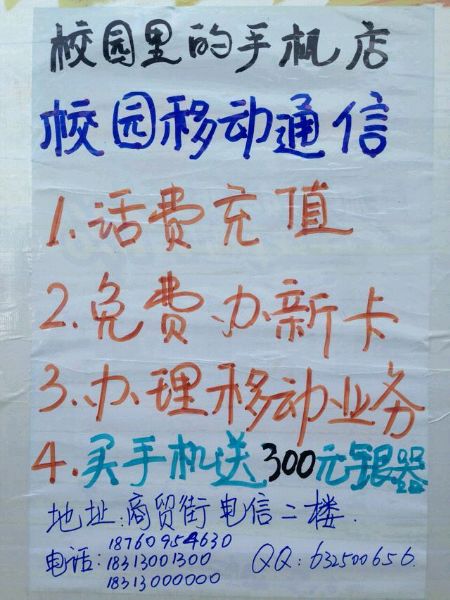 校园里的手机店
校园移动通信
1.话费充值
2.免费办新卡
3.办理移动业务
4.买手机送300元银器
地址:商贸街电信二楼.
电话:18760954630
18313001300
18313000000
QQ:632500656.